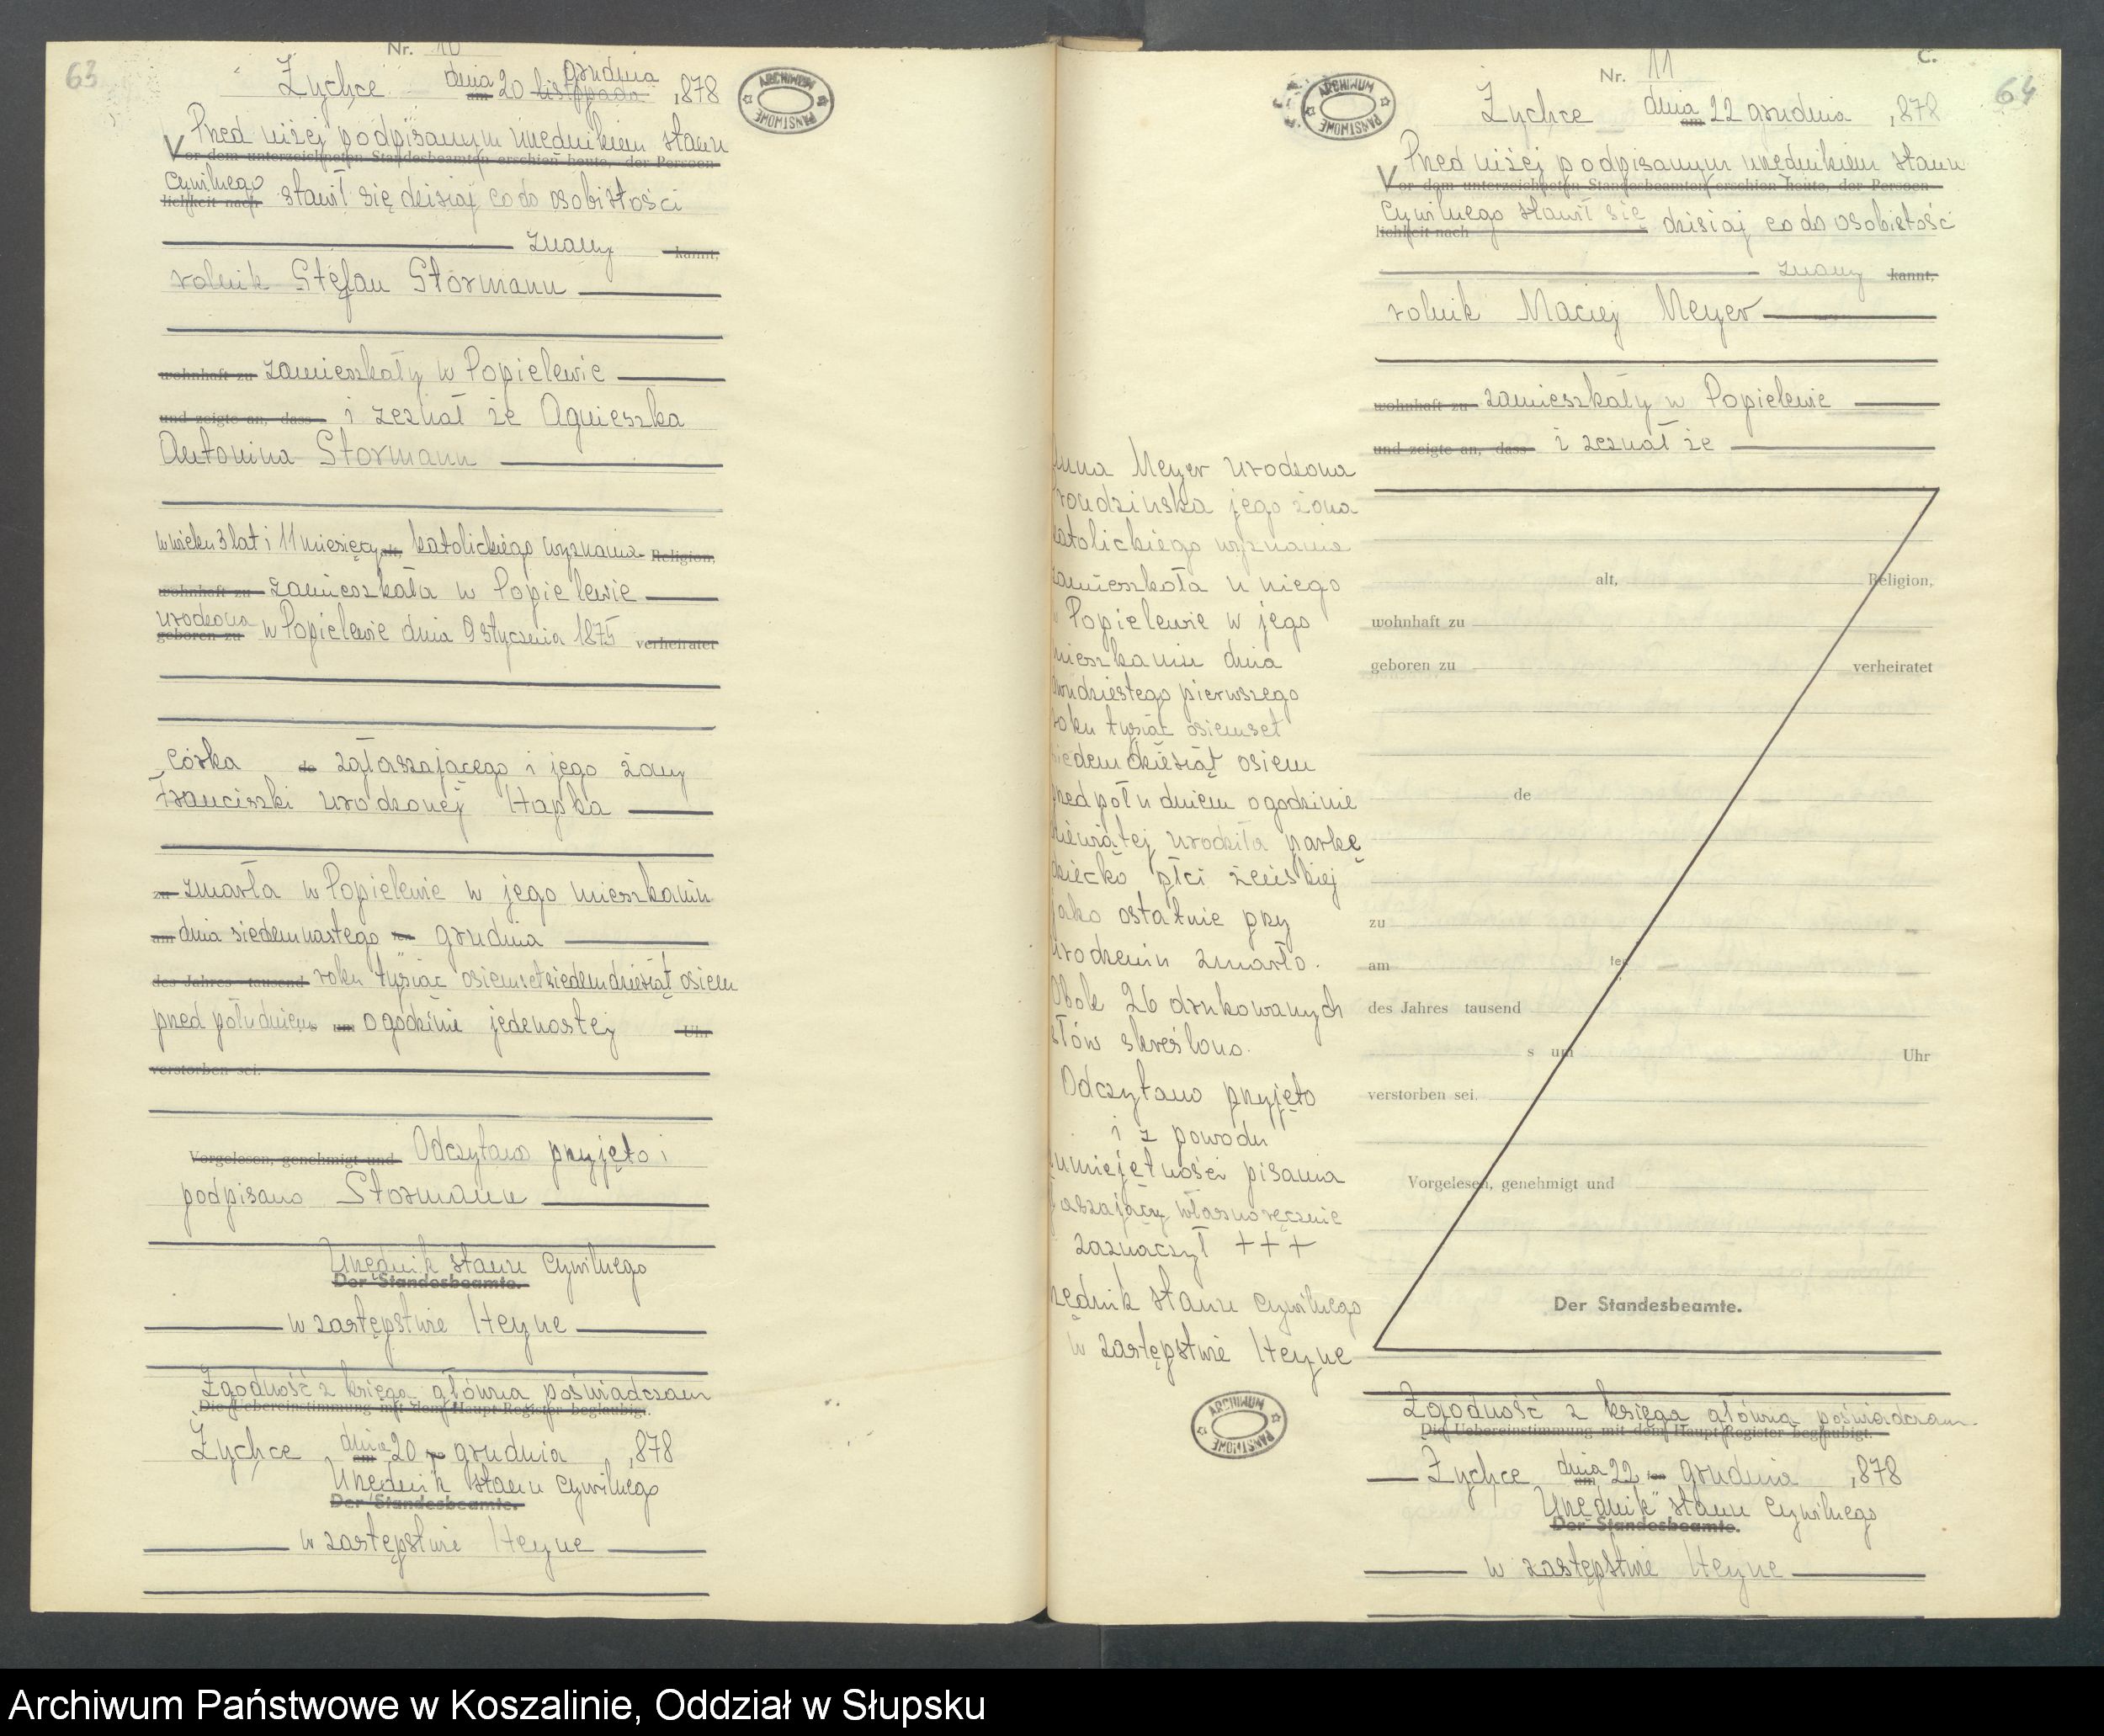 63
Nr. 10
Żychce dnia am 20 listopada grudnia 1878
ARCHIWUM PAŃSTWOWE
Pred niżej podpisanym urednikiem stanu
Vor dem unterzeichneten Standesbeamten erschien heute, der Persoen
cywilnego
lichkeit nach stawił się dzisiaj co do osobistości
znany kannt,
rolnik Stefan Stormann
wohnhaft zu zamieszkały w Popielewie
und zeigte an, dass i zeznał że Agnieszka
Antonina Stormann
w wieku 3 lat i 11 miesięcy alt, katolickiego wyznania Religion,
wohnhaft zu zamieszkała w Popielewie
urodzona
geboren zu w Popielewie dnia 9 stycznia 1875 verheiratet
córka de zgłaszającego i jego żony
Franciszki urodzonej Hapka
zu zmarła w Popielewie w jego mieszkaniu
am dnia siedemnastego ten grudnia
des Jahres tausend roku tysiąc osiemset siedemdziesiąt osiem
pred południem um o godzinie jedenastej Uhr
verstorben sei.
Vorgelesen, genehmigt und Odczytano pryjęto i
podpisano Stormann
Urednik stanu cywilnego
Der Standesbeamte.
w zastępstwie Heyne
Zgodność z księgą główną poświadczam
Die Uebereinstimmung mit dem Haupt-Register beglaubigt.
Żychce dnia am 20 grudnia 1878
Urednik stanu cywilnego
Der Standesbeamte.
w zastępstwie Heyne
C.
64
Nr. 11
ARCHIWUM PAŃSTWOWE
Żychce dnia am 22 grudnia 1878
Pred niżej podpisanym urednikiem stanu
Vor dem unterzeichneten Standesbeamten erschien heute, der Persoen
cywilnego stawił się dzisiaj co do osobistości
lichkeit nach
znany kannt,
rolnik Maciej Meyer
wohnhaft zu zamieszkały w Popielewie
und zeigte an, dass i zeznał że
Anna Meyer urodzona
jego żona
katolickiego wyznania
zamieszkała u niego
w Popielewie w jego
mieszkaniu dnia
dwudziestego pierwszego
roku tysiąc osiemset
siedemdziesiąt osiem
pred południem o godzinie
dziewiątej urodziła parkę
dziecko płci żeńskiej
jako ostatnie pry
urodzeniu zmarło.
Obok 26 drukowanych
słów skreślono.
Odczytano pryjęto
i z powodu
pisania
własnoręcznie
zaznaczył +++
urednik stanu cywilnego
w zastępstwie Heyne
alt, Religion,
wohnhaft zu
geboren zu verheiratet
de
zu
am ten
des Jahres tausend
s um Uhr
verstorben sei.
Vorgelesen, genehmigt und
Der Standesbeamte.
ARCHIWUM PAŃSTWOWE
Zgodność z księgą główną poświadczam
Die Uebereinstimmung mit dem Haupt-Register beglaubigt.
Żychce dnia am 22 ten grudnia 1878
Urednik stanu cywilnego
Der Standesbeamte.
w zastępstwie Heyne
Archiwum Państwowe w Koszalinie, Oddział w Słupsku